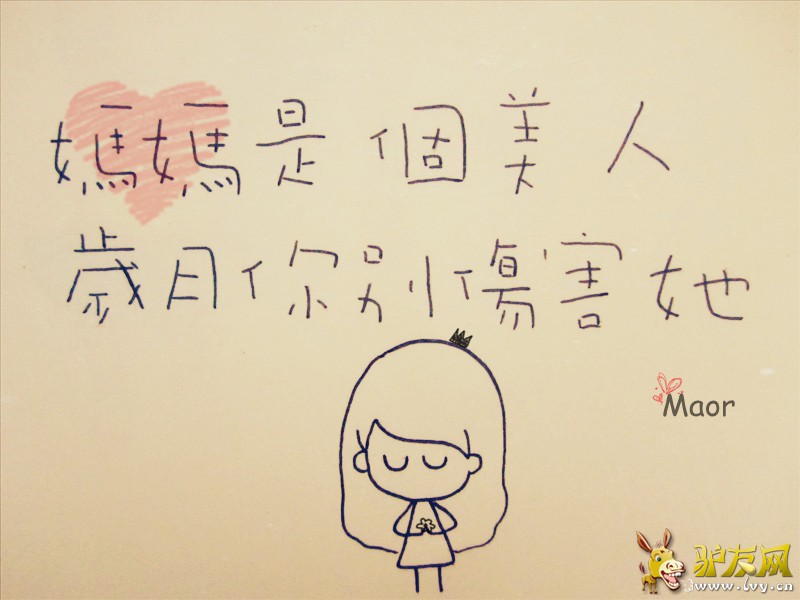 媽媽是個美人
歲月你別傷害她
Maor
驴友网
www.lvy.cn